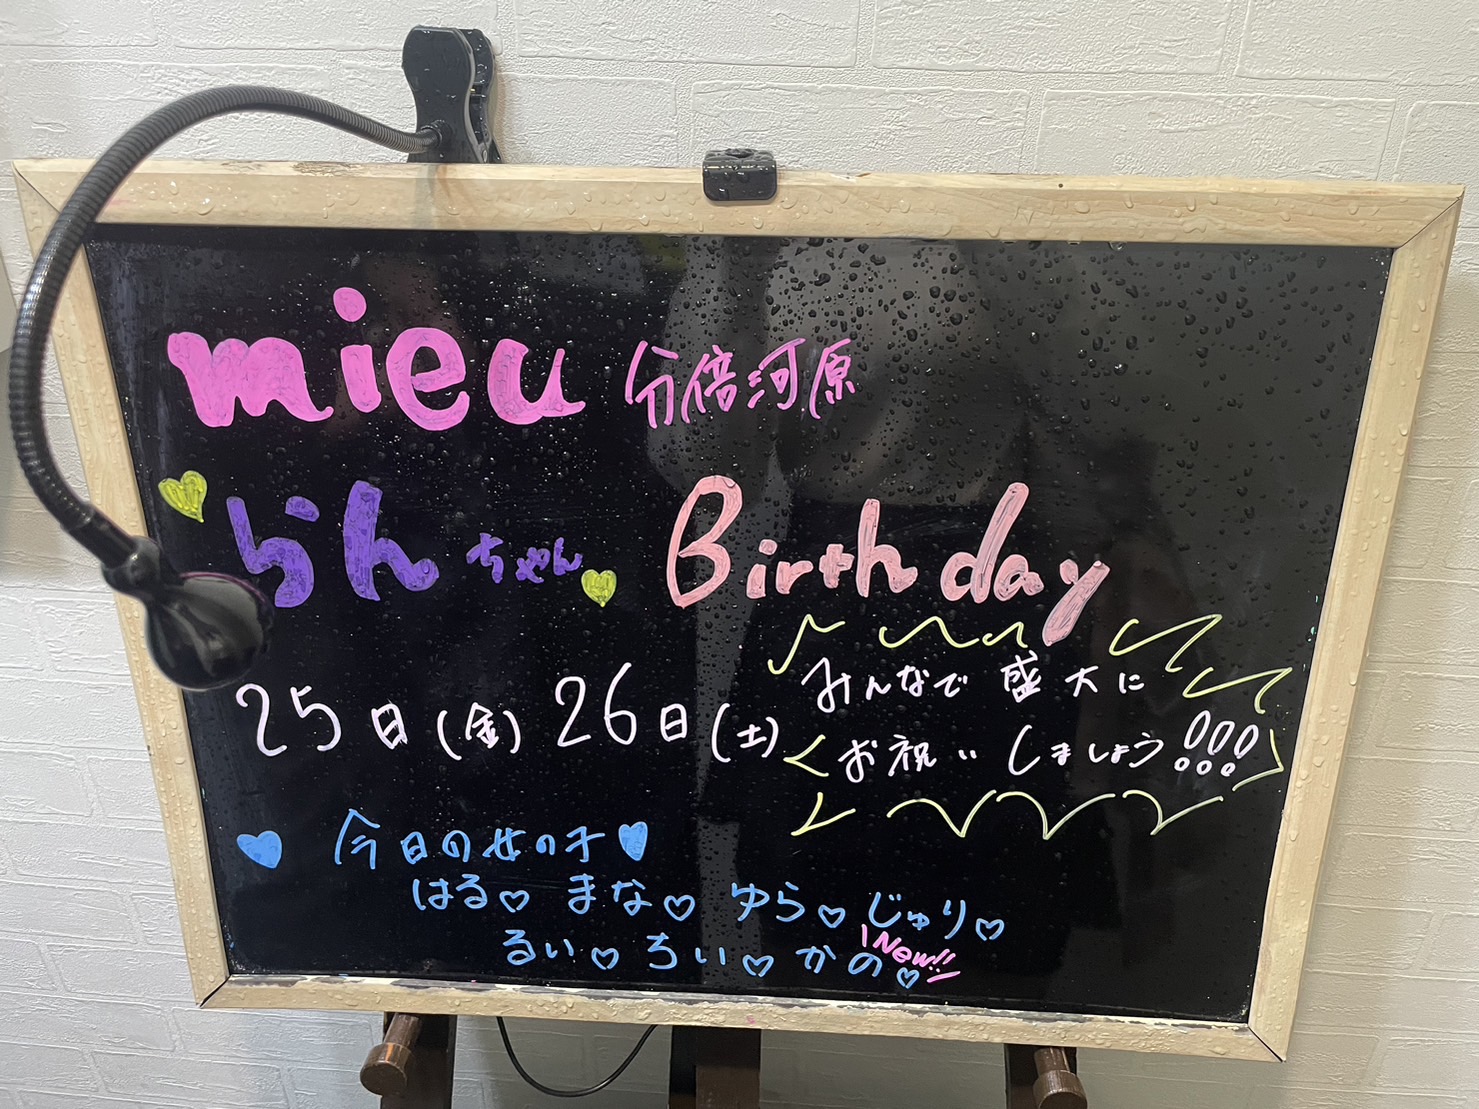 mieu 分倍河原
らんちゃん Birthday
25日(金) 26日(土)
みんなで盛大に
お祝いしましょう!!!
今日の女の子
はる♡ まな♡ ゆら♡ じゅり♡
るい♡ ちい♡ かの♡ New!!